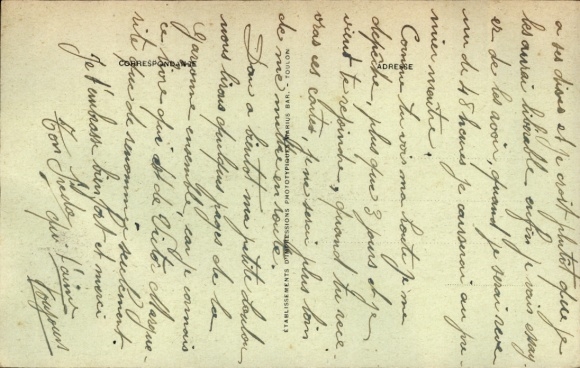 a ses dires et je crois plutôt que je
les aurai libérable enfin je vais essay-
er de les avoir, quand je serai reve
nu de 48 heures je causerai au pre-
mier maître.
Comme tu vois ma toute je me
dépêche, plus que 3 jours et je
viens te rejoindre, quand tu rece-
vras ces cartes, je ne serai plus loin
de me mettre en route.
Donc a bientôt ma petite Loulou
nous lirons quelques pages de la
Garçonne ensemble, car je connais
ce livre qui est de Victor Margue-
ritte plus de renommé seulement.
Je t'embrasse bien fort et merci
Ton
qui t'aime
toujours
CORRESPONDANCE
ADRESSE
ÉTABLISSEMENTS D'IMPRESSIONS PHOTOTYPIQUES MARIUS BAR, - TOULON